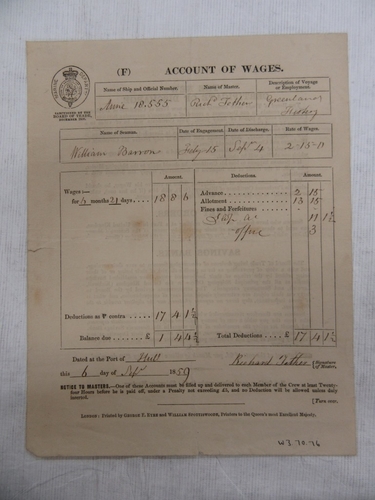 (F) ACCOUNT OF WAGES.
Name of Ship and Official Number. Name of Master. Description of Voyage or Employment.
Annie 18.555 Rich Tother Greenland Fishery
Name of Seaman. Date of Engagement. Date of Discharge. Rate of Wages.
William Barron July 15 Sept 4 2-15-0
Amount. Deductions. Amount.
Wages:—
for 6 months 21 days 18 8 6
Advance 2 15
Allotment 13 15
Fines and Forfeitures
11 1½
office 3
Deductions as P contra 17 4 1½
Balance due £ 1 4 4½
Total Deductions £ 17 4 1½
Dated at the Port of Hull
this 6 day of Sept 1859
Richard Tother Signature of Master.
NOTICE TO MASTERS.—One of these Accounts must be filled up and delivered to each Member of the Crew at least Twenty-
four Hours before he is paid off, under a Penalty not exceeding £5, and no Deduction will be allowed unless duly
inserted.
[Turn over.
LONDON: Printed by GEORGE E. EYRE and WILLIAM SPOTTISWOODE, Printers to the Queen's most Excellent Majesty.